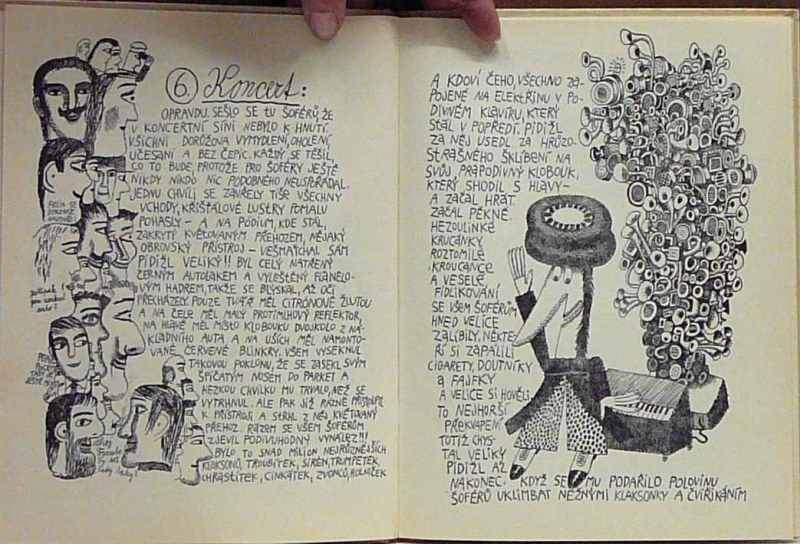 6. Koncert:
OPRAVDU. SEŠLO SE TU ŠOFÉRŮ, ŽE
V KONCERTNÍ SÍNI NEBYLO K HNUTÍ.
VŠICHNI DORŮŽOVA VYMYDLENI, OHOLENI,
UČESANI A BEZ ČEPIC. KAŽDÝ SE TĚŠIL,
CO TO BUDE, PROTOŽE PRO ŠOFÉRY JEŠTĚ
NIKDY NIKDO NIC PODOBNÉHO NEUSPOŘÁDAL.
JEDNU CHVÍLI SE ZAVŘELY TIŠE VŠECHNY
VCHODY, KŘIŠŤÁLOVÉ LUSTRY POMALU
POHASLY — A NA PÓDIUM, KDE STÁL,
ZAKRYTÝ KVĚTOVANÝM PŘEHOZEM, NĚJAKÝ
OBROVSKÝ PŘÍSTROJ — VEŠMAJCHAL SÁM
PIDIŽL VELIKÝ!! BYL CELÝ NATŘENÝ
ČERNÝM AUTOLAKEM A VYLEŠTĚNÝ FLANELO-
VÝM HADREM, TAKŽE SE BLÝSKAL, AŽ OČI
PŘECHÁZELY. POUZE TVÁŘ MĚL CITRÓNOVĚ ŽLUTOU
A NA ČELE MĚL MALÝ PROTIMLHOVÝ REFLEKTOR,
NA HLAVĚ MĚL MÍSTO KLOBOUKU DVOUKOLO Z NÁ-
KLADNÍHO AUTA A NA UŠÍCH MĚL NAMONTO-
VANÉ ČERVENÉ BLINKRY. VŠEM VYSEKNUL
TAKOVOU POKLONU, ŽE SE ZASEKL SVÝM
ŠPIČATÝM NOSEM DO PARKET A
HEZKOU CHVILKU MU TRVALO, NEŽ SE
VYTRHNUL. ALE PAK JIŽ RÁZNĚ PŘISTOUPIL
K PŘÍSTROJI A STRHL Z NĚJ KVĚTOVANÝ
PŘEHOZ. RÁZEM SE VŠEM ŠOFÉRŮM
ZJEVIL PODIVUHODNÝ VYNÁLEZ!!!
BYLO TO SNAD MILION NEJRŮZNĚJŠÍCH
KLAKSONŮ, TROUBÍTEK, SIRÉN, TRUMPETEK,
CHRASTÍTEK, CINKÁTEK, ZVONCŮ, HOUKAČEK
A KDOVÍ ČEHO, VŠECHNO ZA-
POJENÉ NA ELEKTŘINU V PO-
DIVNÉM KLAVÍRU, KTERÝ
STÁL V POPŘEDÍ. PIDIŽL
ZA NĚJ USEDL ZA HRŮZO-
STRAŠNÉHO ŠKLÍBENÍ NA
SVŮJ PRAPODIVNÝ KLOBOUK,
KTERÝ SHODIL S HLAVY —
A ZAČAL HRÁT.
ZAČAL PĚKNĚ
HEZOULINKÉ
KRUCÁNKY,
ROZTOMILÉ
KROUCÁNCE
A VESELÉ
FIDLIKOVÁNÍ
SE VŠEM ŠOFÉRŮM
HNED VELICE
ZALÍBILY. NĚKTE-
ŘÍ SI ZAPÁLILI
CIGARETY, DOUTNÍKY
A FAJFKY
A VELICE SI HOVĚLI.
TO NEJHORŠÍ
PŘEKVAPENÍ
TOTIŽ CHYS-
TAL VELIKÝ
PIDIŽL AŽ
NAKONEC. KDYŽ SE MU PODAŘILO POLOVINU
ŠOFÉRŮ UKLIMBAT NĚŽNÝMI KLAKSONKY A CVIŘIKÁNÍM